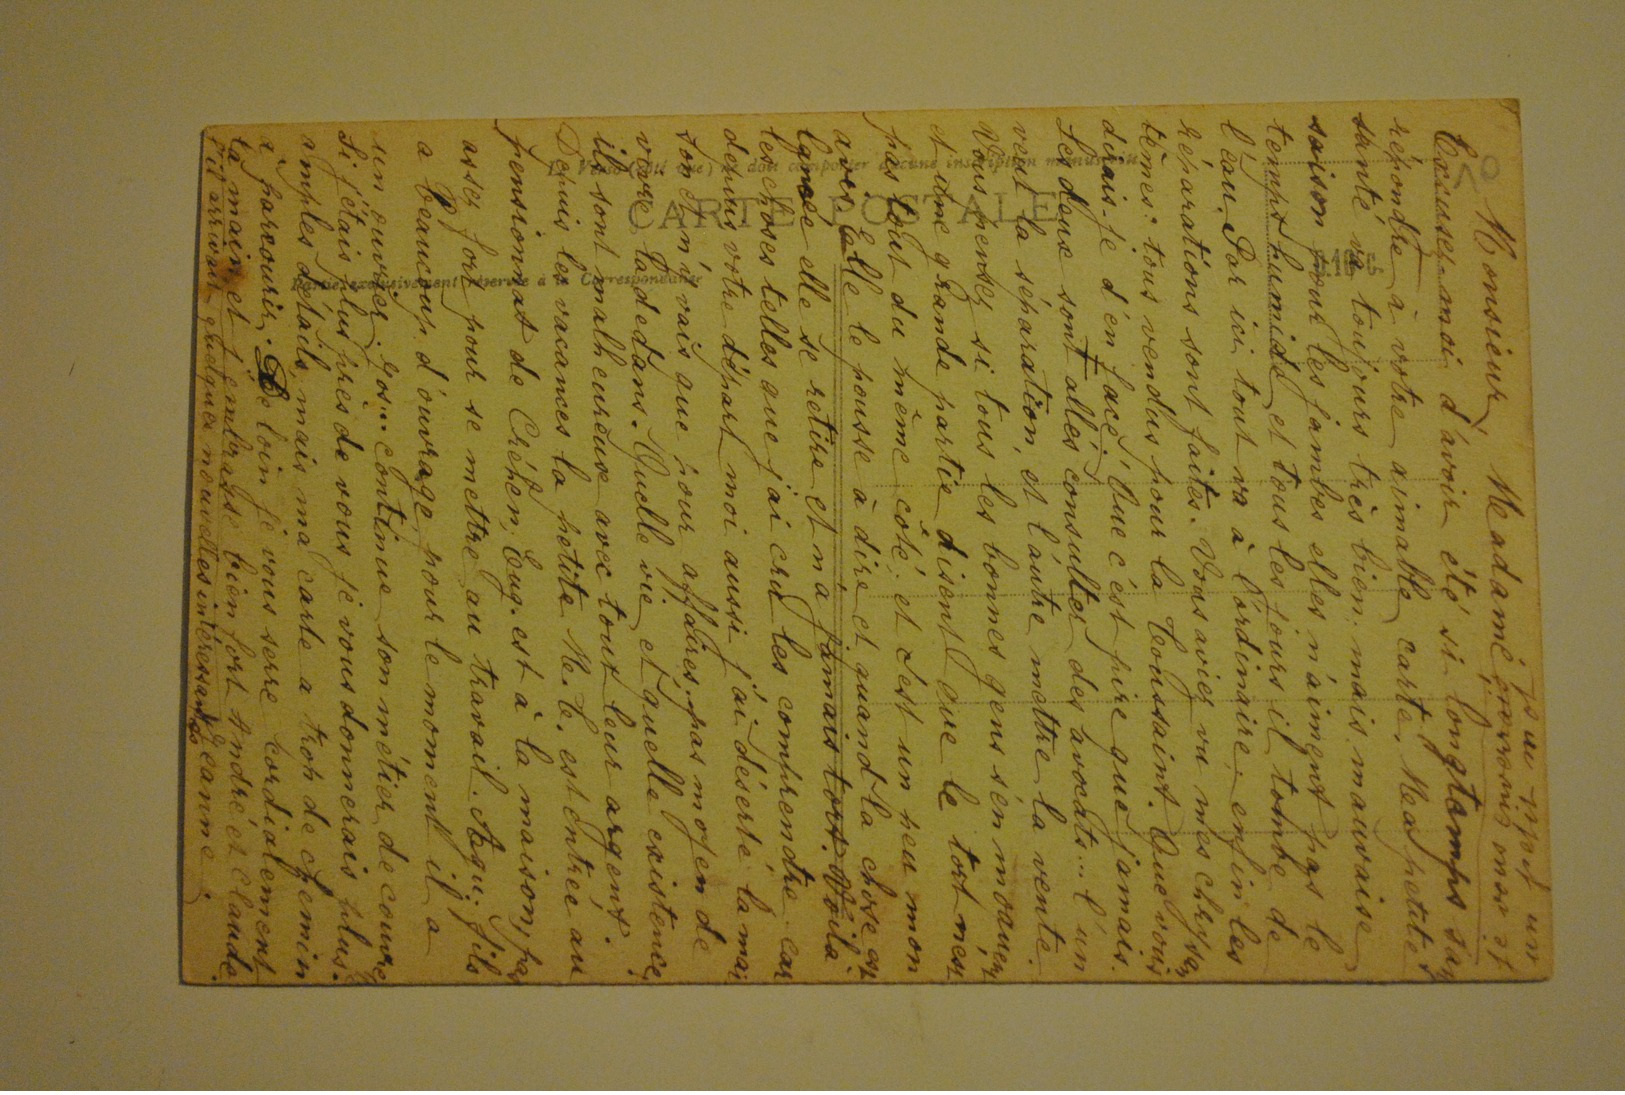 Monsieur, Madame,
Excusez-moi d'avoir été si longtemps sans
répondre à votre aimable carte. Ma petite
santé va toujours très bien: mais mauvaise
saison pour les jambes elles n'aiment pas le
temps humide et tous les jours il tombe de
l'eau. Par ici tout va à l'ordinaire, enfin les
réparations sont faites. Vous aviez vu mes chrysan
tèmes: tous vendus pour la Toussaint. Que vous
dirais-je d'en face: Que c'est pire que jamais.
Les deux sont allés consulter des avocats... l'un
veut la séparation, et l'autre mettre la vente.
Vous pensez si tous les bonnes gens s'en moquent
et une grande partie disent que le tort n'est
pas tout du même côté; et c'est un peu mon
avis. Elle le pousse à dire et quand la chose est
lancée elle se retire et n'a jamais tort. Voilà
les choses telles que j'ai cru les comprendre car
depuis votre départ moi aussi j'ai déserté la mai
son et n'y vais que pour affaires, pas moyen de
vivre là dedans. Quelle vie et quelle existence,
ils sont malheureux avec tout leur argent.
Depuis les vacances la petite M. C. est entrée au
pensionnat de Créhen, Eug. est à la maison, pas
assez fort pour se mettre au travail. Aqu. fils
a beaucoup d'ouvrage pour le moment il a
un ouvrier. Gos... continue son métier de coure
Si j'étais plus près de vous je vous donnerais plus
amples détails, mais ma carte a trop de chemin
à parcourir. De loin je vous serre cordialement
la main et j'embrasse bien fort André et Claude.
quelques nouvelles intéressantes
Jeanne.
CARTE POSTALE
Partie exclusivement réservée à la Correspondance